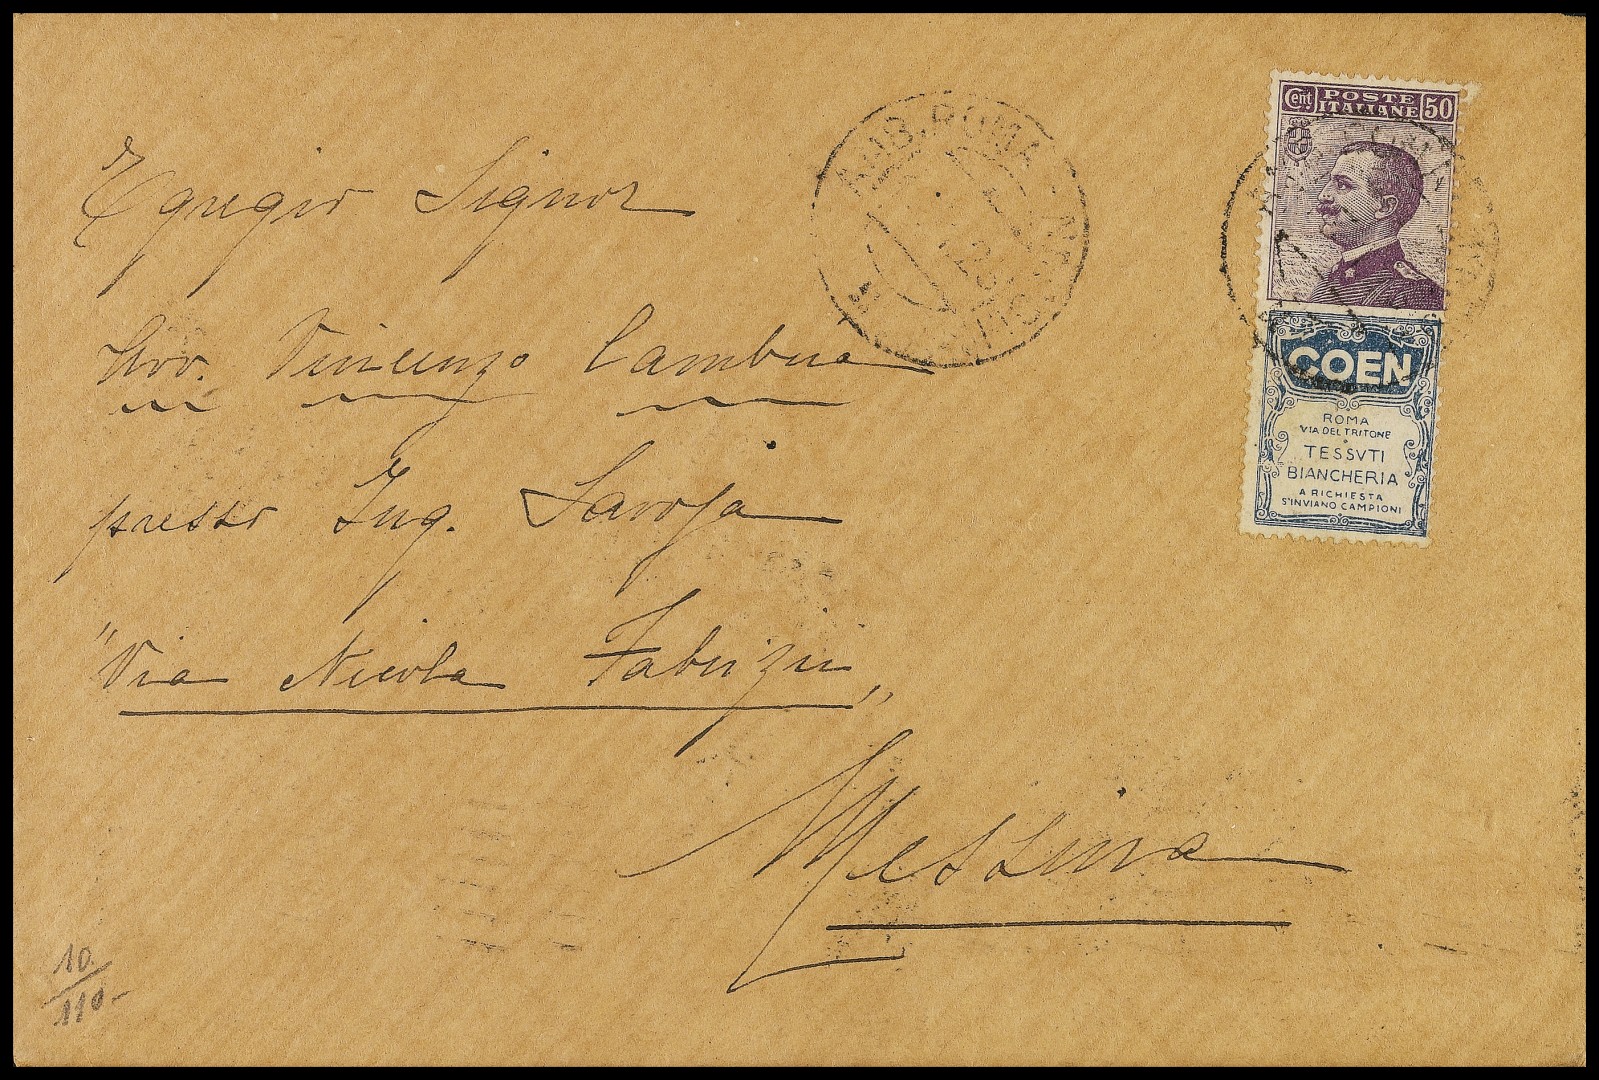 Egregio Signor
Avv. Vincenzo Cambria
presso Ing. Savoja
"Via Nicola Fabrizi"
Messina
AMB. ROMA
Cent POSTE ITALIANE 50
COEN
ROMA
VIA DEL TRITONE
TESSVTI
BIANCHERIA
A RICHIESTA
S'INVIANO CAMPIONI
10
110-